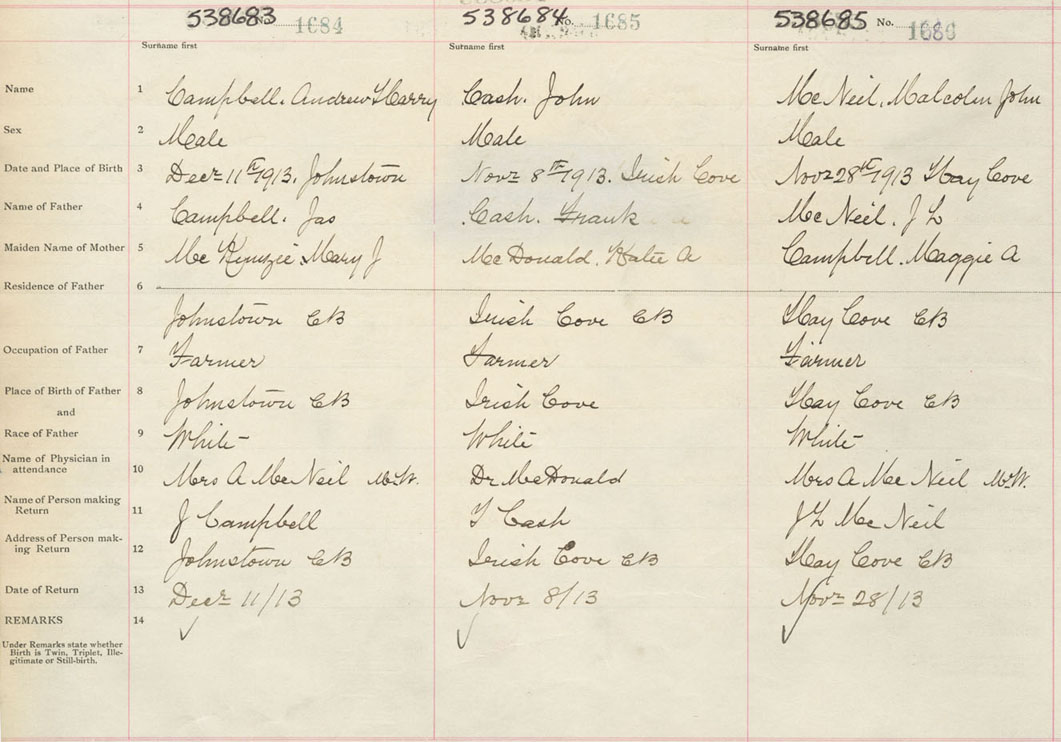 538683 No. 1684 538684 No. 1685 538685 No. 1686
Surname first Surname first Surname first
Name 1 Campbell. Andrew Harry Cash. John McNeil, Malcolm John
Sex 2 Male Male Male
Date and Place of Birth 3 Decr 11th 1913. Johnstown Novr 8th 1913. Irish Cove Novr 28th 1913 Hay Cove
Name of Father 4 Campbell. Jas Cash. Frank McNeil. J L
Maiden Name of Mother 5 McKinzie. Mary J McDonald. Katie A Campbell. Maggie A
Residence of Father 6
Johnstown CB Irish Cove CB Hay Cove CB
Occupation of Father 7 Farmer Farmer Farmer
Place of Birth of Father 8 Johnstown CB Irish Cove Hay Cove CB
and
Race of Father 9 White White White
Name of Physician in
attendance 10 Mrs A McNeil M.W. Dr McDonald Mrs A McNeil M.W.
Name of Person making
Return 11 J Campbell F Cash J L McNeil
Address of Person mak-
ing Return 12 Johnstown CB Irish Cove CB Hay Cove CB
Date of Return 13 Decr 11/13 Novr 8/13 Novr 28/13
REMARKS 14
Under Remarks state whether
Birth is Twin, Triplet, Ille-
gitimate or Still-birth.